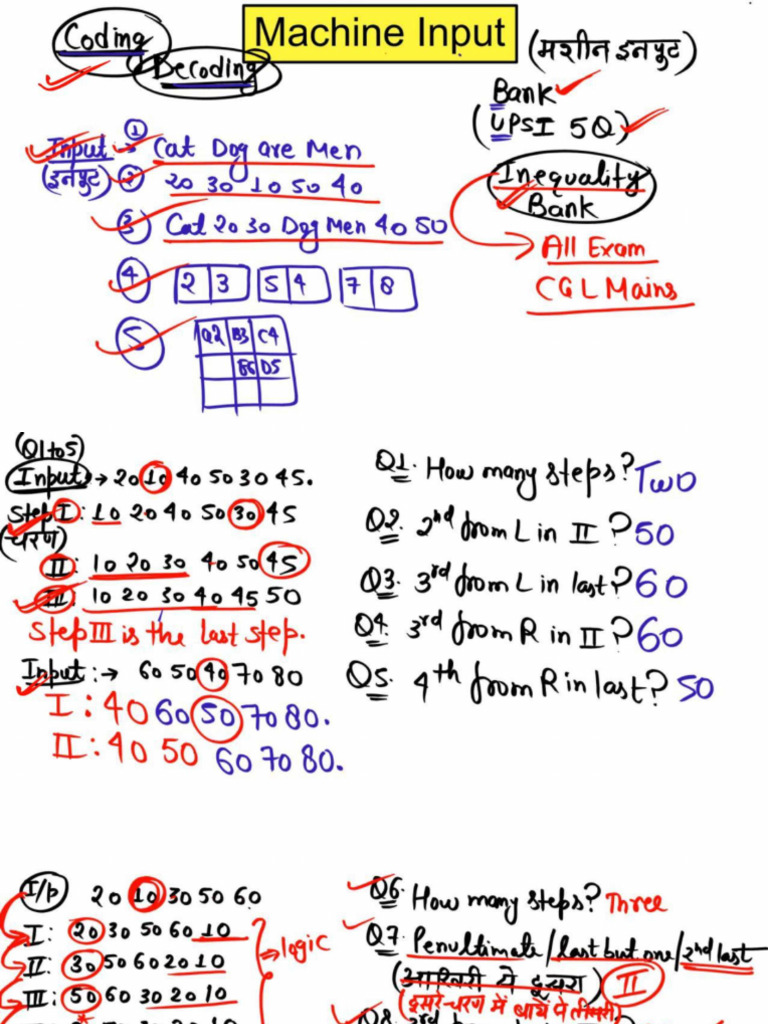 Coding
Decoding
Machine Input
(मशीन इनपुट)
Bank
(UPSI 5Q)
Input → ① Cat Dog are Men
(इनपुट) ② 20 30 10 50 40
③ Cat 20 30 Dog Men 40 50
Inequality
Bank
All Exam
CGL Mains
④ 2 3 5 4 7 8
⑤ Q2 B3 C4
B6 D5
(Q1 to 5)
Input → 20 10 40 50 30 45.
Step I : 10 20 40 50 30 45
(चरण)
II : 10 20 30 40 50 45
III : 10 20 30 40 45 50
Step III is the last step.
Input :→ 60 50 40 70 80
I : 40 60 50 70 80.
II : 40 50 60 70 80.
Q1. How many steps? Two
Q2. 2nd from L in II ? 50
Q3. 3rd from L in last? 60
Q4. 3rd from R in II ? 60
Q5. 4th from R in last? 50
I/p 20 10 30 50 60
I : 20 30 50 60 10
II : 30 50 60 20 10
III : 50 60 30 20 10
⇒ logic
Q6. How many steps? Three
Q7. Penultimate/last but one/2nd last
(आखिरी से दूसरा) II
(दूसरे चरण में बायें से तीसरी)
Q8. 3rd